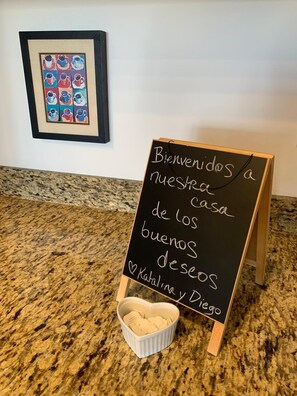 Bienvenid@s a
nuestra
casa
de los
buenos
deseos
♡ Katalina y Diego